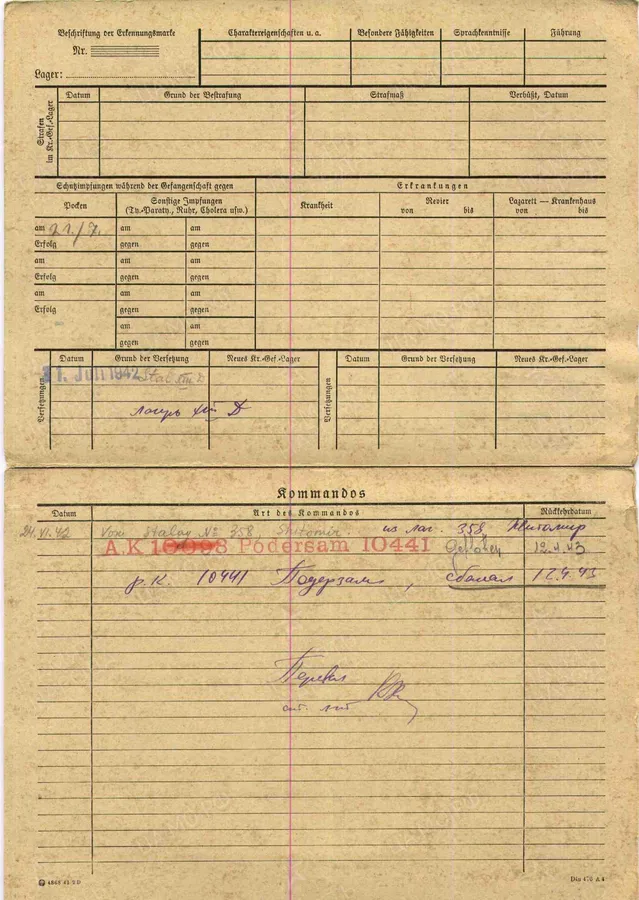 Beschriftung der Erkennungsmarke
Nr.
Lager:
Charaktereigenschaften u. a.
Besondere Fähigkeiten
Sprachkenntnisse
Führung
Strafen im Kr.-Gef.-Lager
Datum
Grund der Bestrafung
Strafmaß
Verbüßt, Datum
Schutzimpfungen während der Gefangenschaft gegen
Erkrankungen
Pocken
Sonstige Impfungen
(Ty.-Paraty., Ruhr, Cholera usw.)
Krankheit
Revier
von bis
Lazarett — Krankenhaus
von bis
am 21./7. am am
Erfolg gegen gegen
am am am
Erfolg gegen gegen
am am am
Erfolg gegen gegen
am am
gegen gegen
Versetzungen
Datum Grund der Versetzung Neues Kr.-Gef.-Lager
Versetzungen
Datum Grund der Versetzung Neues Kr.-Gef.-Lager
21. Juli 1942 Stal. XIII B
лагерь XIII Б
Kommandos
Datum Art des Kommandos Rückkehrdatum
24.VI.42 Von Stalag № 358 Shitomir из лаг. 358 Житомир
A.K Podersam 10441 Geflohen 12.4.43
р.к. 10441 Подерзам, сбежал 12.4.43
Перевел
4868 41 3D
Din 476 A 4